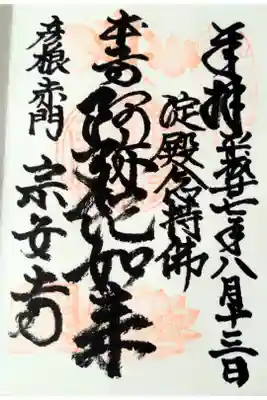 奉拝 七年八月十三日
淀殿念持佛
本尊 阿弥陀如来
彦根赤門 宗安寺